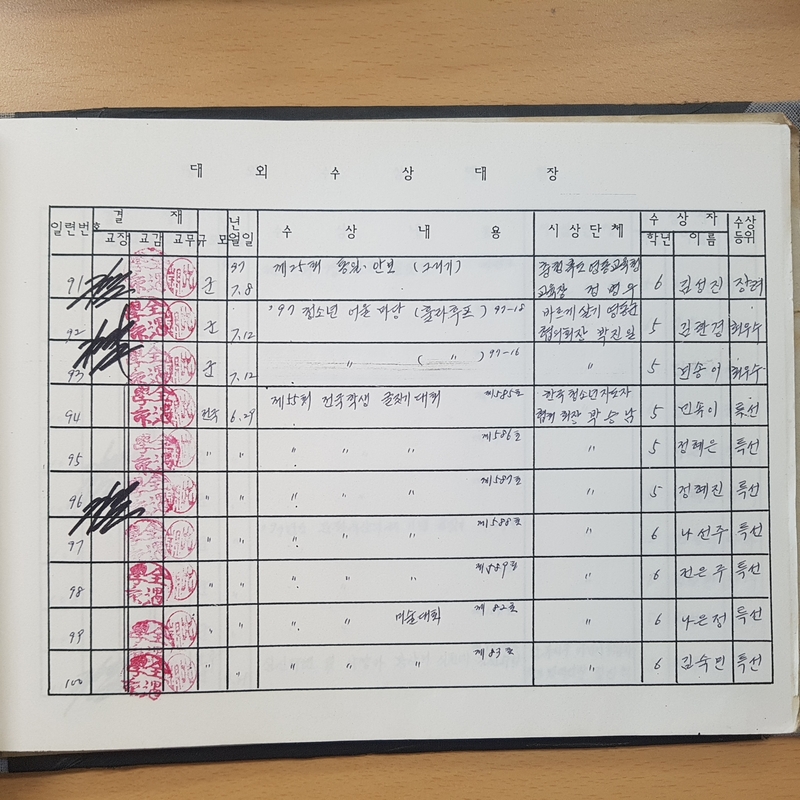 대 외 수 상 대 장
일련번호 결 재 년 수 상 내 용 시상단체 수 상 자 수상
교장 교감 교무 규 모 월일 학년 이름 등위
91 군 97 7.8 제25회 통일·안보 (그리기) 교육장 6 김성진 장려
92 군 7.12 '97 청소년 어울 마당 (훌라후프) 97-18 바르게 살기 영동군 협의회장 박진일 5 김환경 최우수
93 군 7.12 〃 ( 〃 ) 97-16 〃 5 최우수
94 전국 6.29 제55회 전국학생 글짓기 대회 제585호 한국청소년지도자 협회 회장 곽승남 5 민속이 특선
95 〃 〃 〃 〃 〃 제586호 〃 5 정혜은 특선
96 〃 〃 〃 〃 〃 제587호 〃 5 정혜진 특선
97 〃 〃 〃 〃 〃 제588호 〃 6 나선주 특선
98 〃 〃 〃 〃 〃 제589호 〃 6 전은주 특선
99 〃 〃 〃 〃 미술대회 제82호 〃 6 나은정 특선
100 〃 〃 〃 〃 〃 제83호 〃 6 김숙민 특선